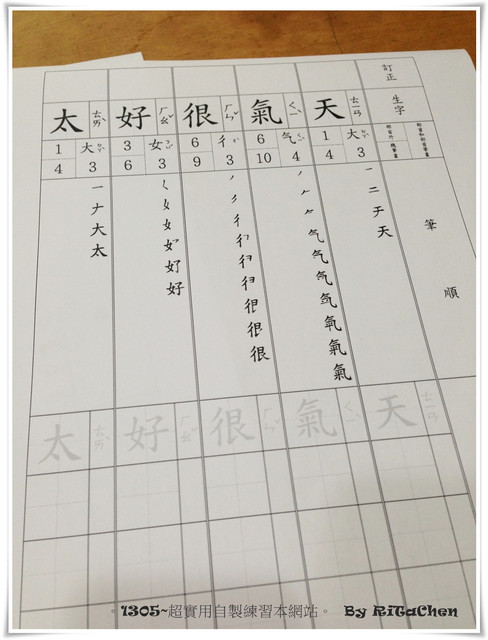 訂正
生字
筆順
天 ㄊㄧㄢ
1 大 ㄉㄚˋ
4 3
一
二
チ
天
氣 ㄑㄧˋ
6 气 ㄑㄧˋ
10 4
丿
𠂉
气
气
气
気
氣
氣
氣
很 ㄏㄣˇ
6 彳 ㄔˋ
9 3
丿
彳
彳
很
很
很
好 ㄏㄠˇ
3 女 ㄋㄩˇ
6 3
ㄑ
女
女
好
好
太 ㄊㄞˋ
1 大 ㄉㄚˋ
4 3
一
ナ
大
太
天 ㄊㄧㄢ
氣 ㄑㄧˋ
很 ㄏㄣˇ
好 ㄏㄠˇ
太 ㄊㄞˋ
。1305~超實用自製練習本網站。 By RiTaChen